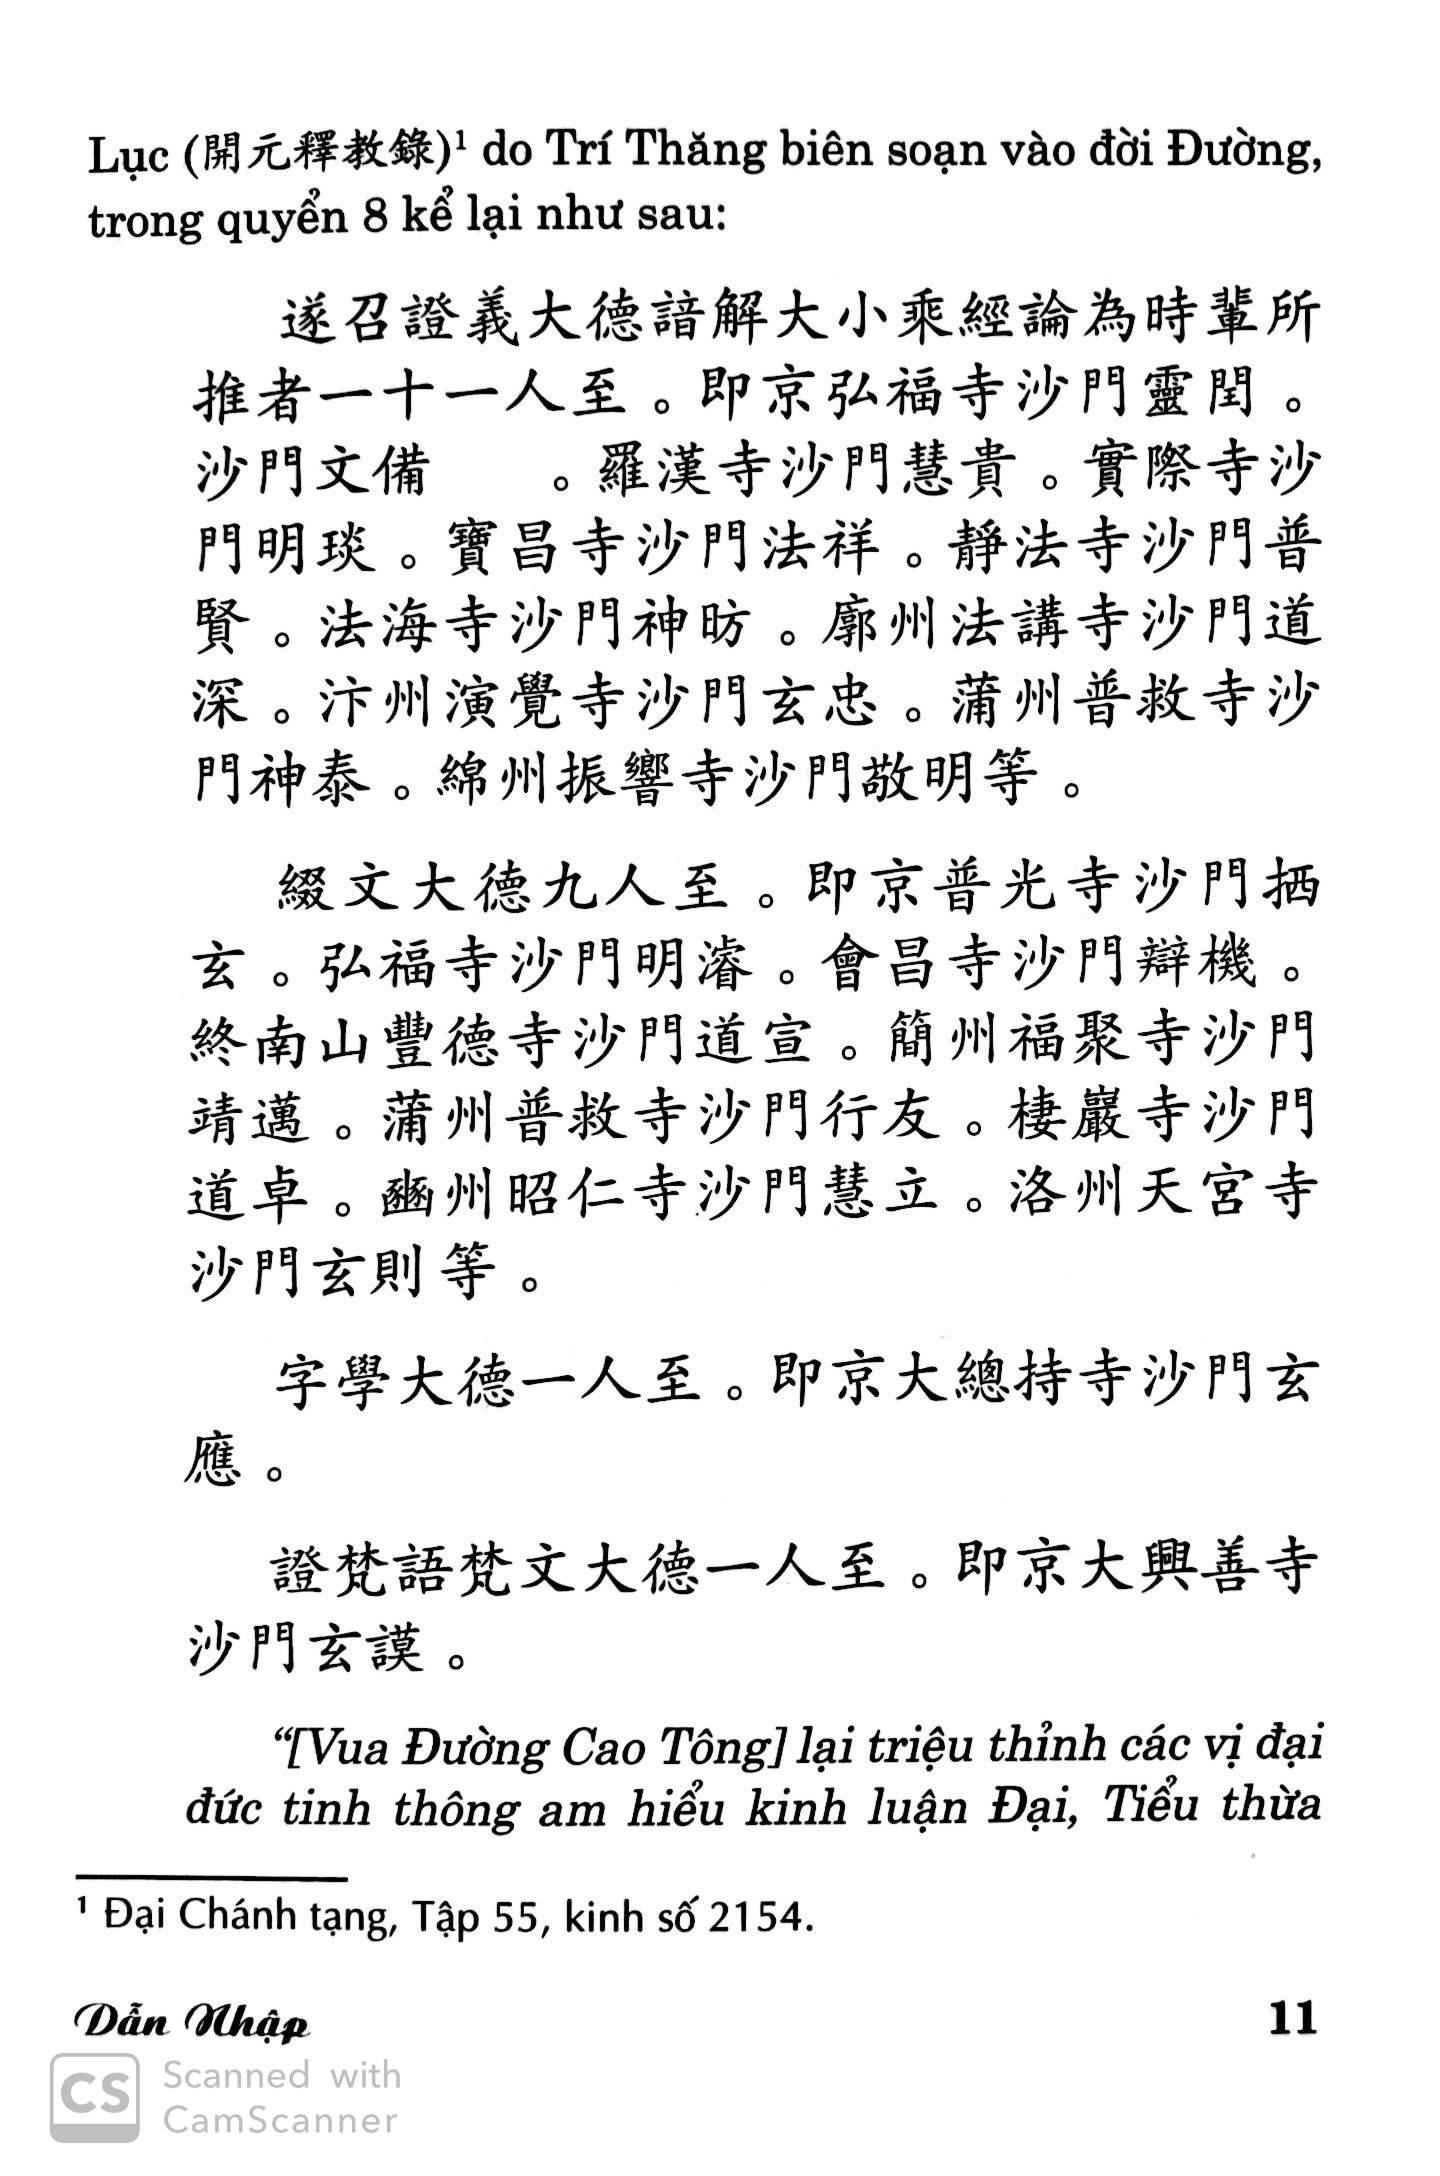 Lục (開元釋教錄)¹ do Trí Thăng biên soạn vào đời Đường,
trong quyển 8 kể lại như sau:
遂召證義大德諳解大小乘經論為時輩所
推者一十一人至。即京弘福寺沙門靈閏。
沙門文備 。羅漢寺沙門慧貴。實際寺沙
門明琰。寶昌寺沙門法祥。靜法寺沙門普
賢。法海寺沙門神昉。廓州法講寺沙門道
深。汴州演覺寺沙門玄忠。蒲州普救寺沙
門神泰。綿州振響寺沙門敬明等。
綴文大德九人至。即京普光寺沙門栖
玄。弘福寺沙門明濬。會昌寺沙門辯機。
終南山豐德寺沙門道宣。簡州福聚寺沙門
靖邁。蒲州普救寺沙門行友。棲巖寺沙門
道卓。豳州昭仁寺沙門慧立。洛州天宮寺
沙門玄則等。
字學大德一人至。即京大總持寺沙門玄
應。
證梵語梵文大德一人至。即京大興善寺
沙門玄謨。
“[Vua Đường Cao Tông] lại triệu thỉnh các vị đại
đức tinh thông am hiểu kinh luận Đại, Tiểu thừa
¹ Đại Chánh tạng, Tập 55, kinh số 2154.
Dẫn Nhập 11
CS Scanned with
CamScanner